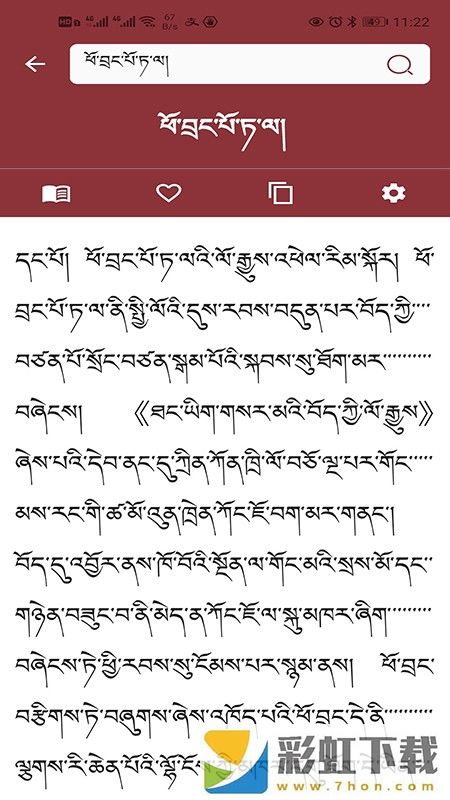 HD 4G 4G 67 B/s 49 11:22
ཕོ་བྲང་པོ་ཏ་ལ།
ཕོ་བྲང་པོ་ཏ་ལ།
དང་པོ།  ཕོ་བྲང་པོ་ཏ་ལའི་ལོ་རྒྱུས་འཕེལ་རིམ་སྐོར།  ཕོ་
བྲང་པོ་ཏ་ལ་ནི་སྤྱི་ལོའི་དུས་རབས་བདུན་པར་བོད་ཀྱི་་་་
བཙན་པོ་སྲོང་བཙན་སྒམ་པོའི་སྐབས་སུ་ཐོག་མར་་་་་་་་་
བཞེངས།  《ཐང་ཡིག་གསར་མའི་བོད་ཀྱི་ལོ་རྒྱུས》
ཞེས་པའི་དེབ་ནང་དུ་ཀྲིན་ཀོན་ཁྲི་ལོ་བཅོ་ལྔ་པར་གོང་་་་་
མས་རང་གི་ཚ་མོ་འུན་ཁྲེན་ཀོང་ཇོ་བག་མར་གནང་།
བོད་དུ་འབྱོར་ནས་ཁོ་བོའི་སྔོན་ལ་གོང་མའི་སྲས་མོ་དང་་
གཉེན་བཟུང་བ་ནི་མེད་ན་ཀོང་ཇོ་ལ་སྐུ་མཁར་ཞིག་་་་་་་་
བཞེངས་ཏེ་ཕྱི་རབས་སུ་ངོམས་པར་སྙམ་ནས།  ཕོ་བྲང་
བརྩིགས་ཏེ་བཞུགས་ཞེས་འཁོད་པའི་ཕོ་བྲང་དེ་ནི་་་་་་
ལྕགས་རི་ཆེན་པོའི་ལྷོ་ངོས་
彩虹下载
www.7hon.com